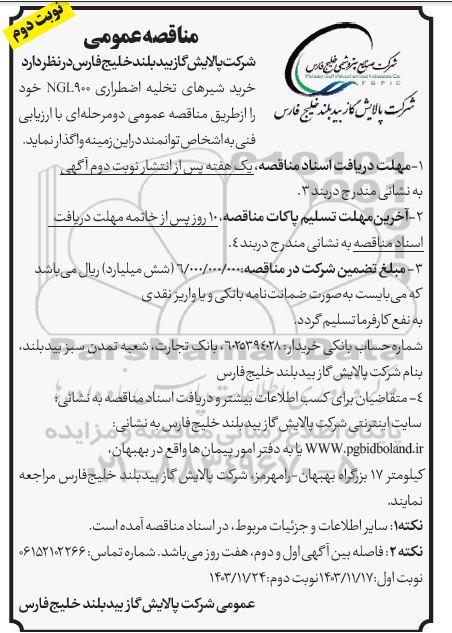 نوبت دوم
مناقصه عمومی
شرکت صنایع پتروشیمی خلیج فارس
Persian Gulf Petrochemical Industries Co.
PGPIC
شرکت پالایش گاز بیدبلند خلیج فارس
شرکت پالایش گاز بیدبلند خلیج فارس در نظر دارد
خرید شیرهای تخلیه اضطراری NGL۹۰۰ خود
را از طریق مناقصه عمومی دو مرحله‌ای با ارزیابی
فنی به اشخاص توانمند در این زمینه واگذار نماید.
۱- مهلت دریافت اسناد مناقصه، یک هفته پس از انتشار نوبت دوم آگهی
به نشانی مندرج در بند ۳.
۲- آخرین مهلت تسلیم پاکات مناقصه، ۱۰ روز پس از خاتمه مهلت دریافت
اسناد مناقصه به نشانی مندرج در بند ۴.
۳- مبلغ تضمین شرکت در مناقصه: ۶/۰۰۰/۰۰۰/۰۰۰ (شش میلیارد) ریال می‌باشد
که می‌بایست به صورت ضمانت‌نامه بانکی و یا واریز نقدی
به نفع کارفرما تسلیم گردد.
شماره حساب بانکی خریدار: ۶۰۲۵۳۹۴۰۲۸، بانک تجارت، شعبه تمدن سبز بیدبلند،
بنام شرکت پالایش گاز بیدبلند خلیج فارس
۴- متقاضیان برای کسب اطلاعات بیشتر و دریافت اسناد مناقصه به نشانی؛
سایت اینترنتی شرکت پالایش گاز بیدبلند خلیج فارس به نشانی:
WWW.pgbidboland.ir یا به دفتر امور پیمان‌ها واقع در بهبهان،
کیلومتر ۱۷ بزرگراه بهبهان-رامهرمز، شرکت پالایش گاز بیدبلند خلیج فارس مراجعه
نمایند.
نکته۱: سایر اطلاعات و جزئیات مربوط، در اسناد مناقصه آمده است.
نکته۲: فاصله بین آگهی اول و دوم، هفت روز می‌باشد. شماره تماس: ۰۶۱۵۲۱۰۲۲۶۶
نوبت اول: ۱۴۰۳/۱۱/۱۷ نوبت دوم: ۱۴۰۳/۱۱/۲۴
عمومی شرکت پالایش گاز بیدبلند خلیج فارس